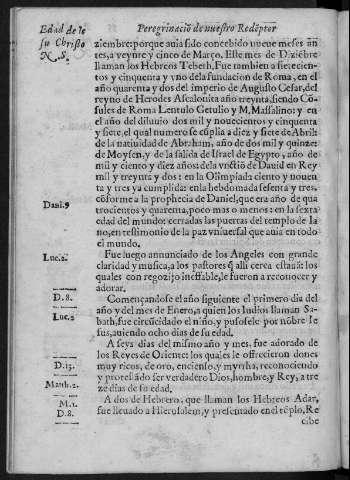 Edad de Ie
su Christo
N.S.
Peregrinació de nuestro Redẽptor
ziembre: porque auia sido concebido nueue meses an
tes, a veynte y cinco de Março. Este mes de Diziẽbre
llaman los Hebreos Tebeth. Fue tambien a sietecien
tos y cinquenta y vno dela fundacion de Roma, en el
año quarenta y dos del imperio de Augusto Cesar, del
reyno de Herodes Ascalonita año treynta, siendo Cõ
sules de Roma Lentulo Getulio y M. Massalino: y en
el año del diluuio dos mil y nouecientos y cinquenta
y siete, el qual numero se cũplia a diez y siete de Abril:
de la natiuidad de Abraham, año de dos mil y quinze:
de Moysen, y de la salida de Israel de Egypto, año de
mil y ciento y diez años dela vnctiõ de Dauid en Rey
mil y treynta y dos: en la Olimpiada ciento y nouen
ta y tres ya cumplida: en la hebdomada sesenta y tres,
cõforme a la prophecia de Daniel, que era año de qua
Dani.9
trocientos y quarenta, poco mas o menos: en la sexta
edad del mundo: cerradas las puertas del templo de Ia
no, en testimonio de la paz vniuersal que auia en todo
el mundo.
Luc.2.
Fue luego annunciado de los Angeles con grande
claridad y musica, a los pastores q̃ alli cerca estauã: los
quales con regozijo ineffable, le fueron a reconocer y
adorar.
D.8.
Començandose el año siguiente el primero dia del
año y del mes de Enero, a quien los Iudios llaman Sa-
Luc.2
bath, fue circũcidado el niño, y pusosele por nõbre Ie
sus, auiendo ocho dias de su edad.
A seys dias del mismo año y mes, fue adorado de
los Reyes de Oriente: los quales le offrecieron dones
D.13.
muy ricos, de oro, encienso, y myrrha, reconociendo
y protestãdo ser verdadero Dios, hombre, y Rey, a tre
Matth.2.
ze dias de su edad.
M.1.
A dos de Hebrero, que llaman los Hebreos Adar,
D.8.
fue lleuado a Hierusalem, y presentado en el tẽplo, Re
cibe